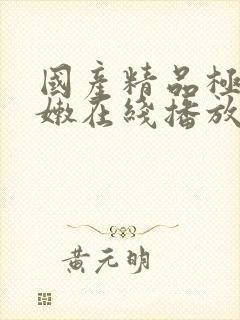 國產精品極
嫩在綫播放
黃元明